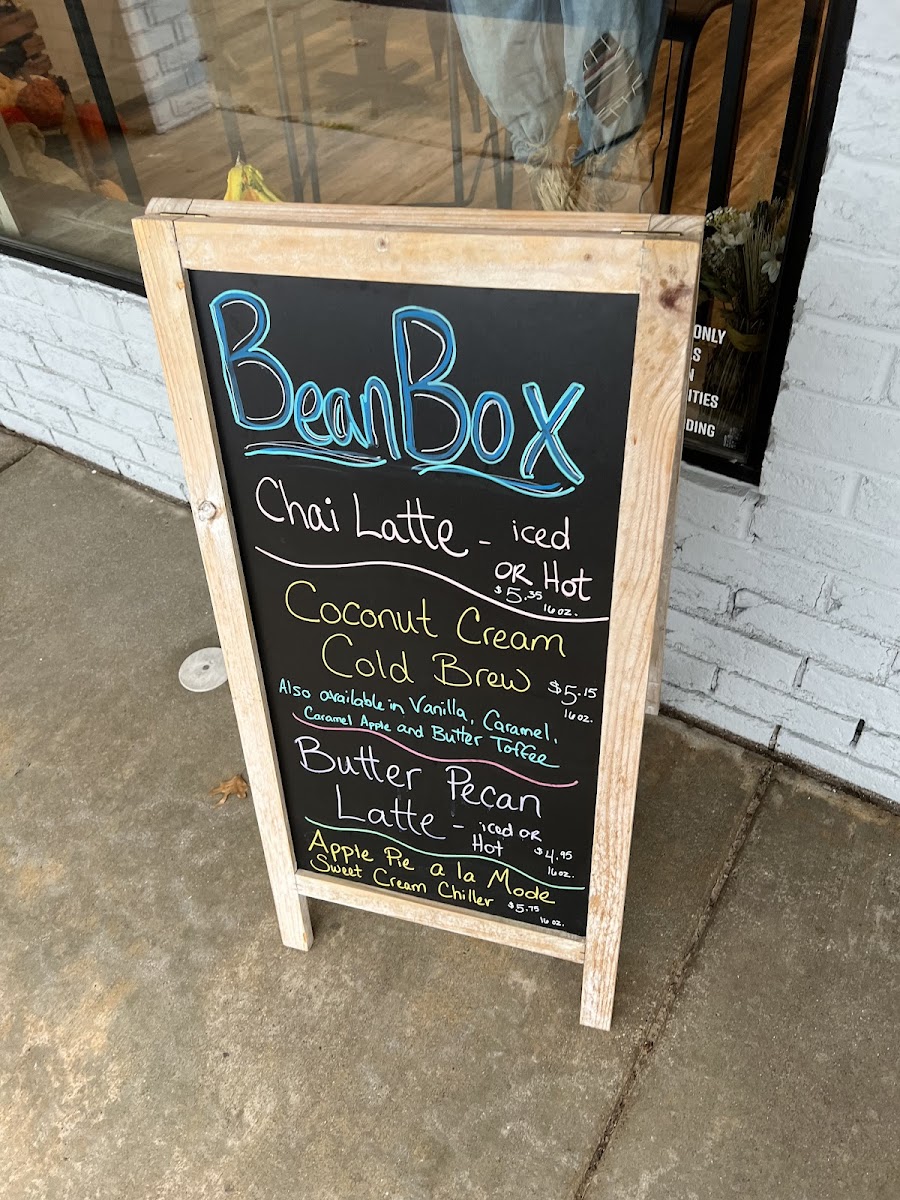 BeanBox
Chai Latte - iced
OR Hot
$5.35
16 oz.
Coconut Cream
Cold Brew $5.15
16 oz.
Also available in Vanilla, Caramel,
Caramel Apple and Butter Toffee
Butter Pecan
Latte - iced OR
Hot $4.95
16 oz.
Apple Pie a la Mode
Sweet Cream Chiller $5.75
16 oz.
ONLY
S
N
ITIES
DING